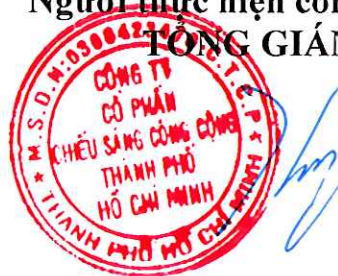 Người thực hiện
TỔNG GIÁM
CÔNG TY
CỔ PHẦN
CHIẾU SÁNG CÔNG CỘNG
THÀNH PHỐ
HỒ CHÍ MINH
THÀNH PHỐ HỒ CHÍ MINH